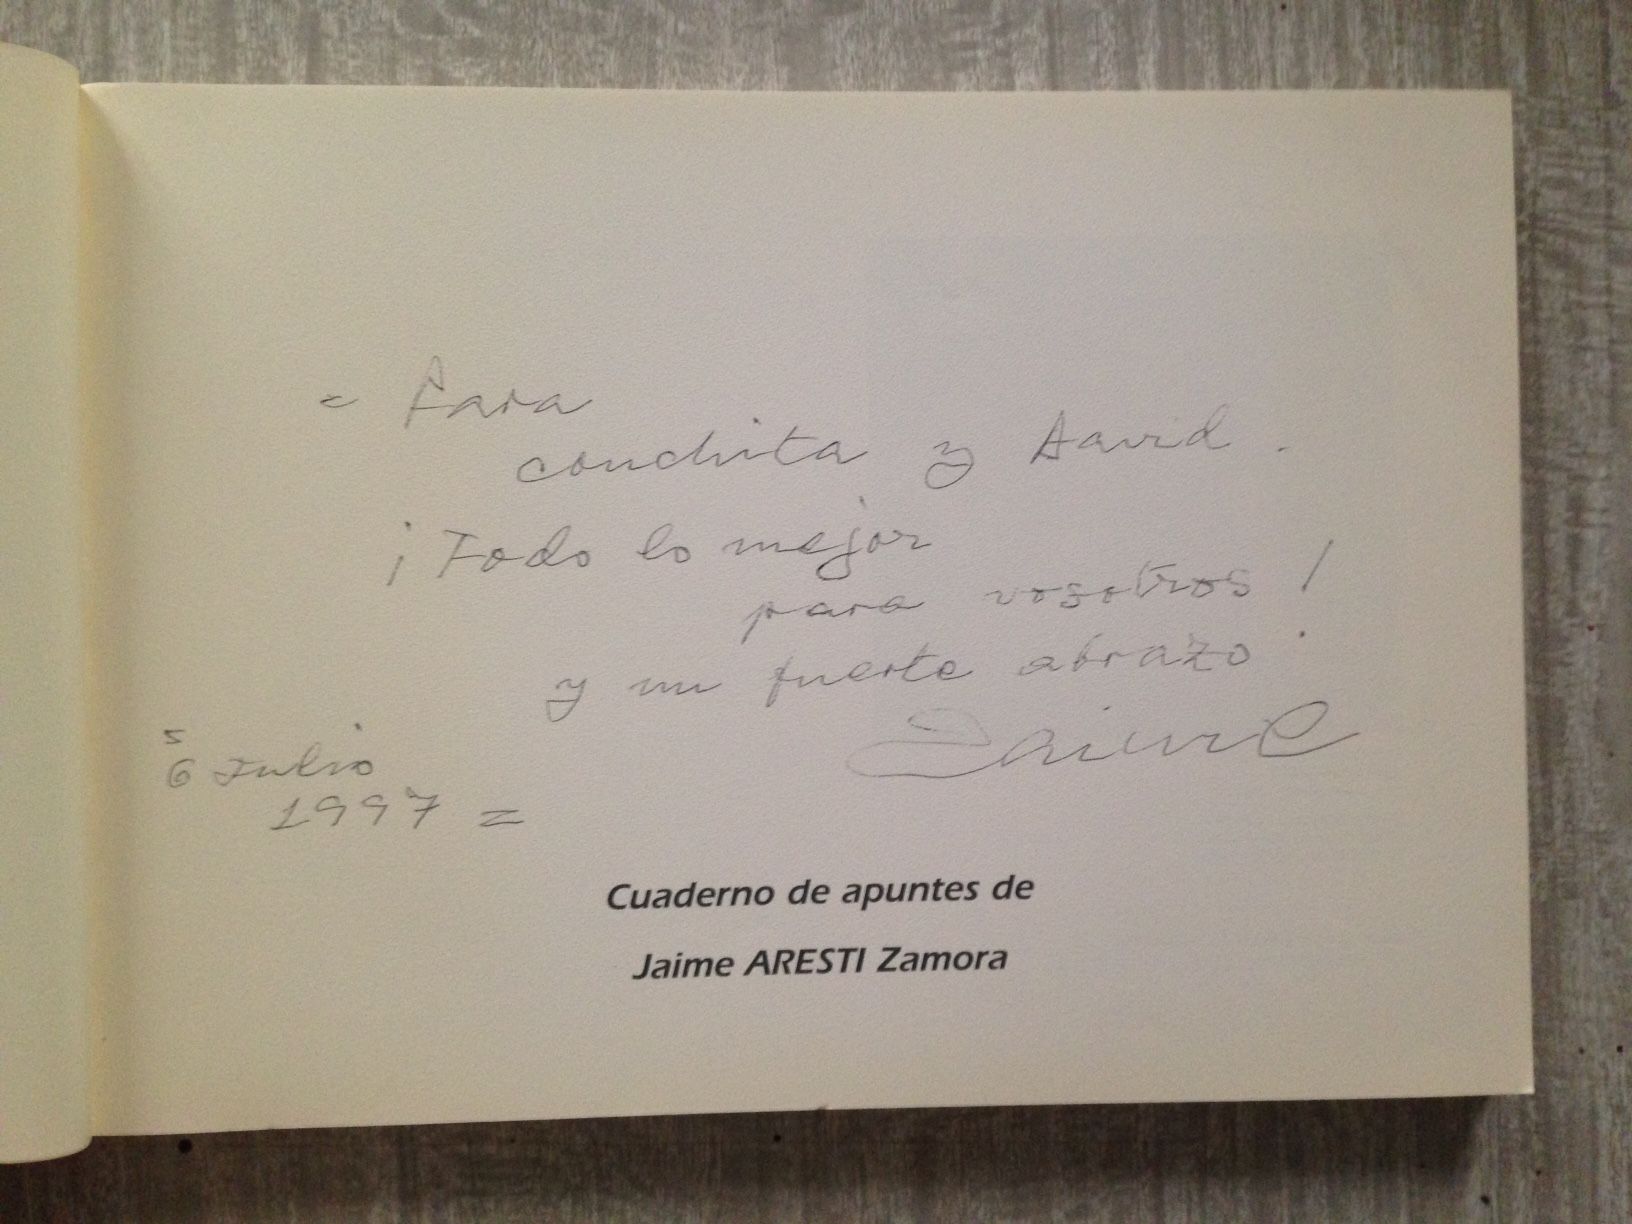 = Para
conchita y David.
¡Todo lo mejor
para vosotros!
y un fuerte abrazo
Jaime
5
6 Julio
1997 =
Cuaderno de apuntes de
Jaime ARESTI Zamora